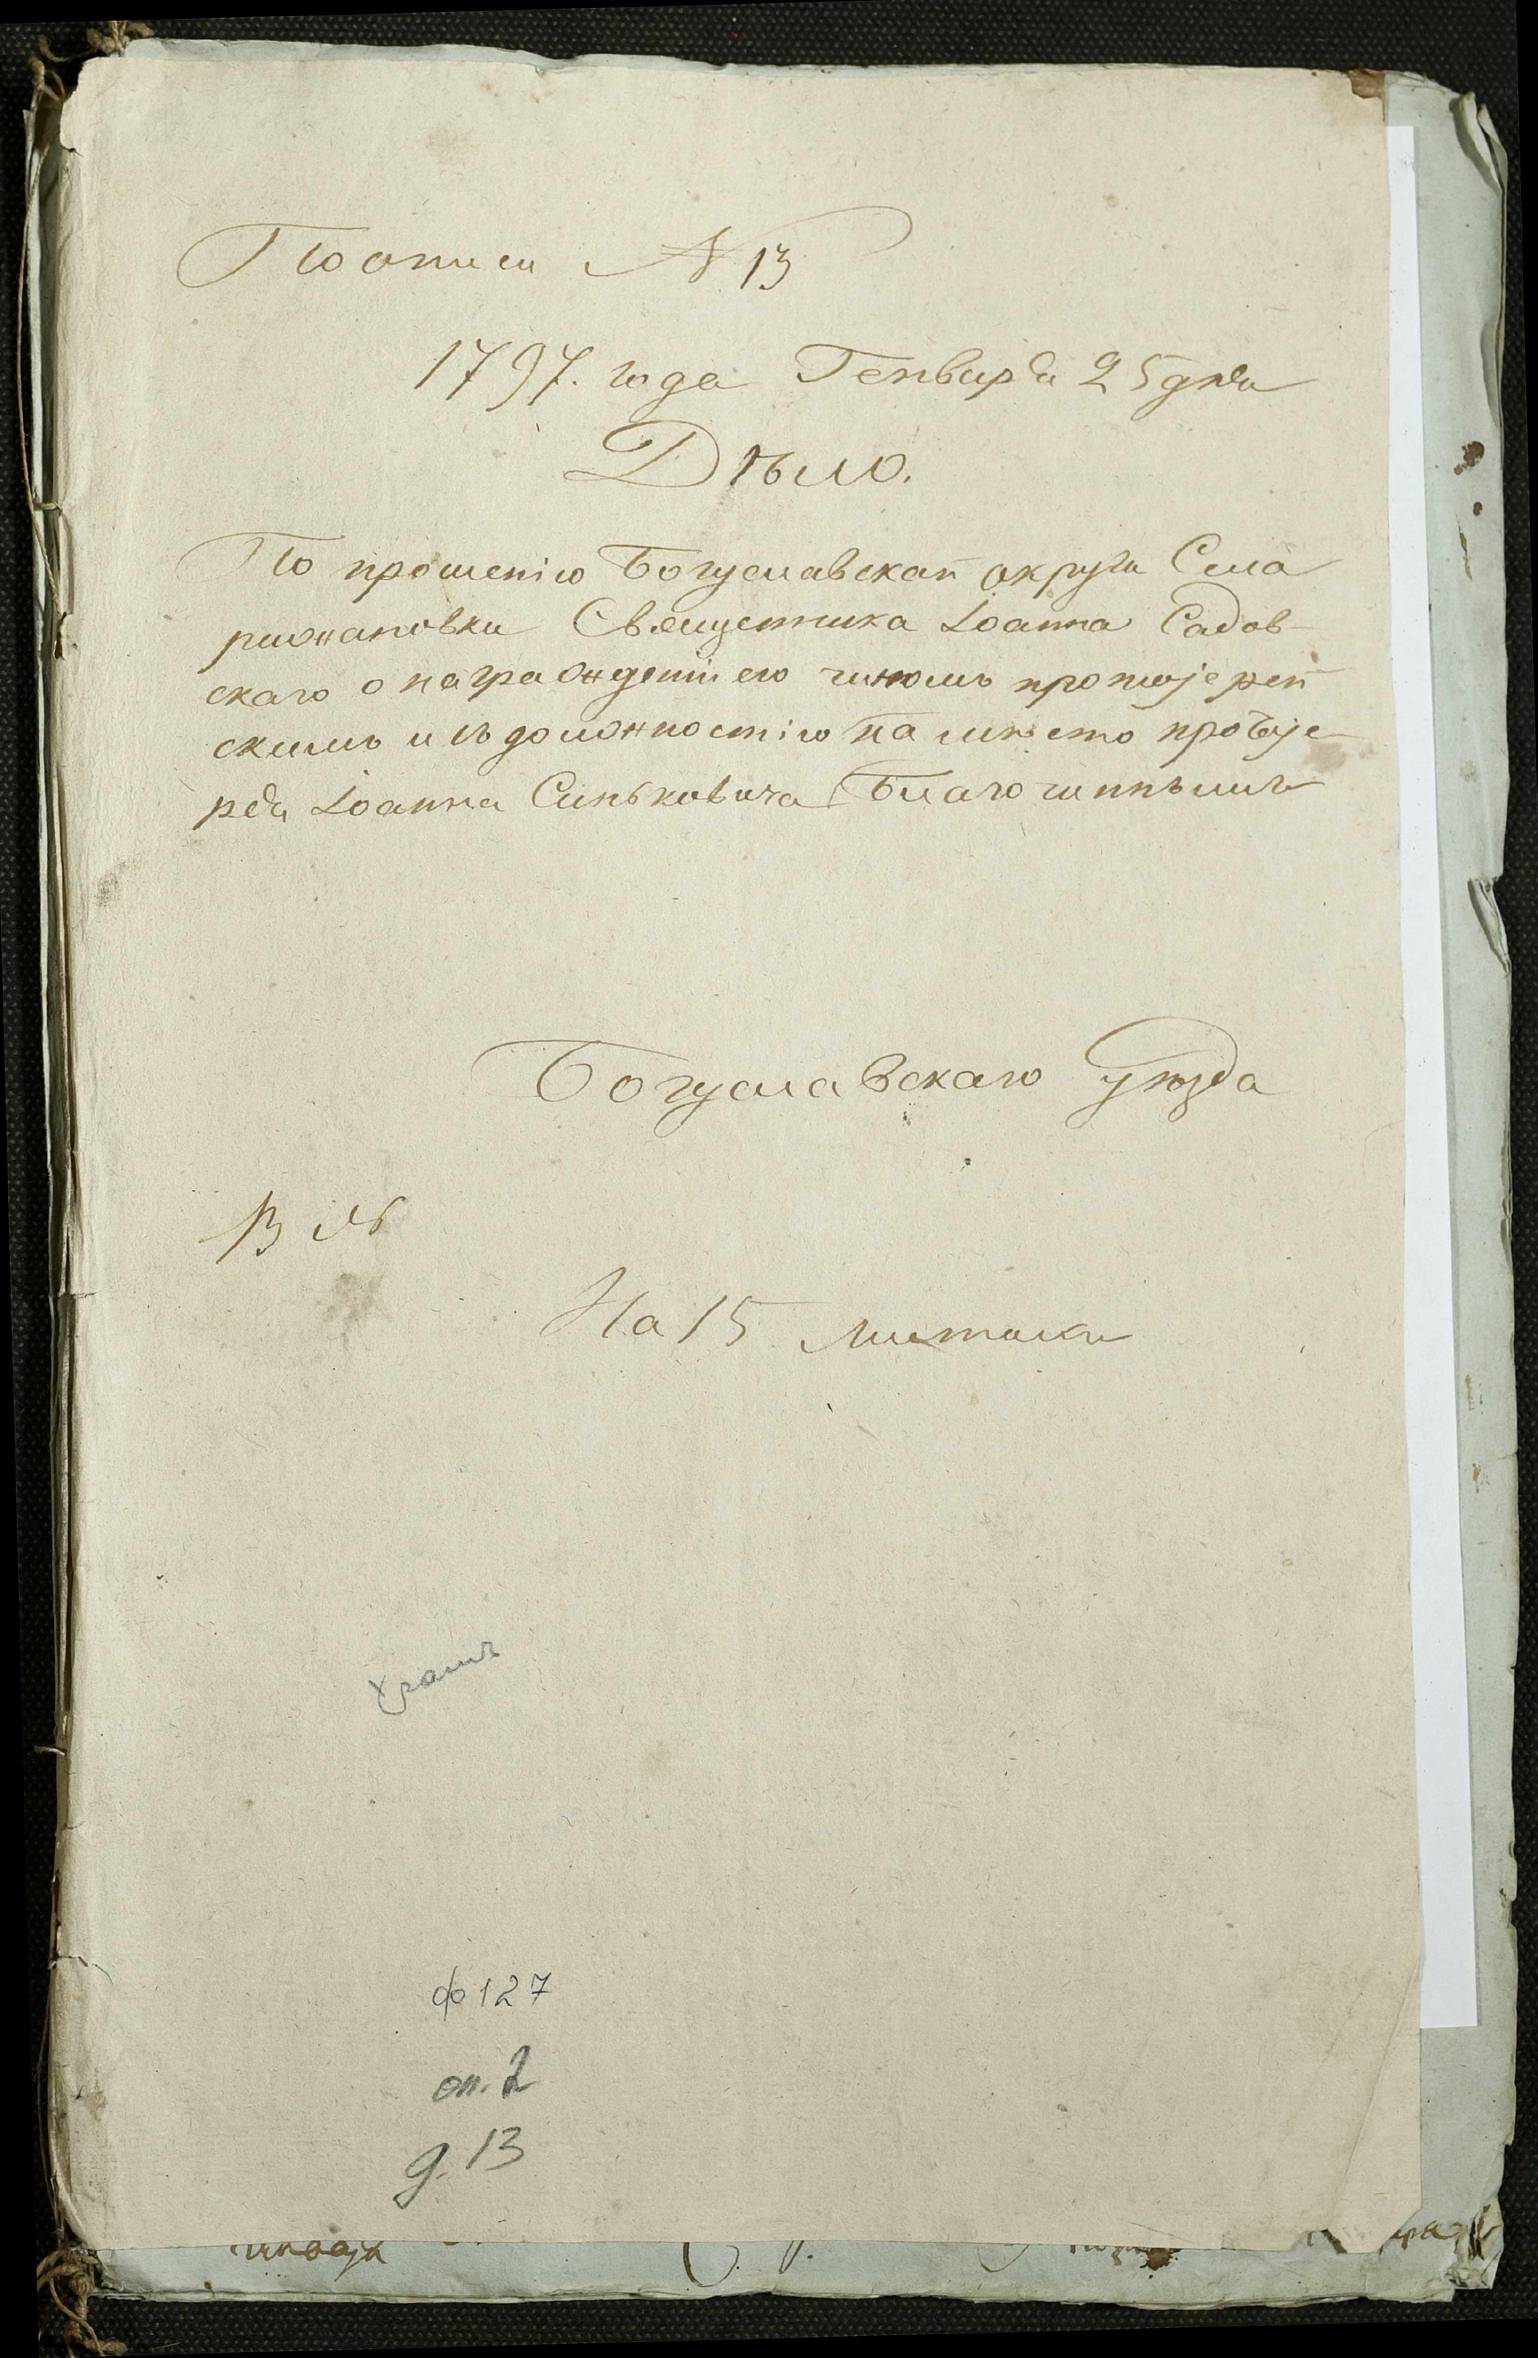 По описи № 13
1797. года Генваря 25 дня
Дѣло.
По прошенію Богуславской округи Села
рыжановки Священника Іоанна Садов-
скаго о награжденіи его чиномъ протоіерей
скимъ и съ должностію на мѣсто протоіе-
рея Іоанна Синьковича Благочиннымъ
Богуславскаго уѣзда
На 15 листахъ
ф 127
оп. 2
д. 13